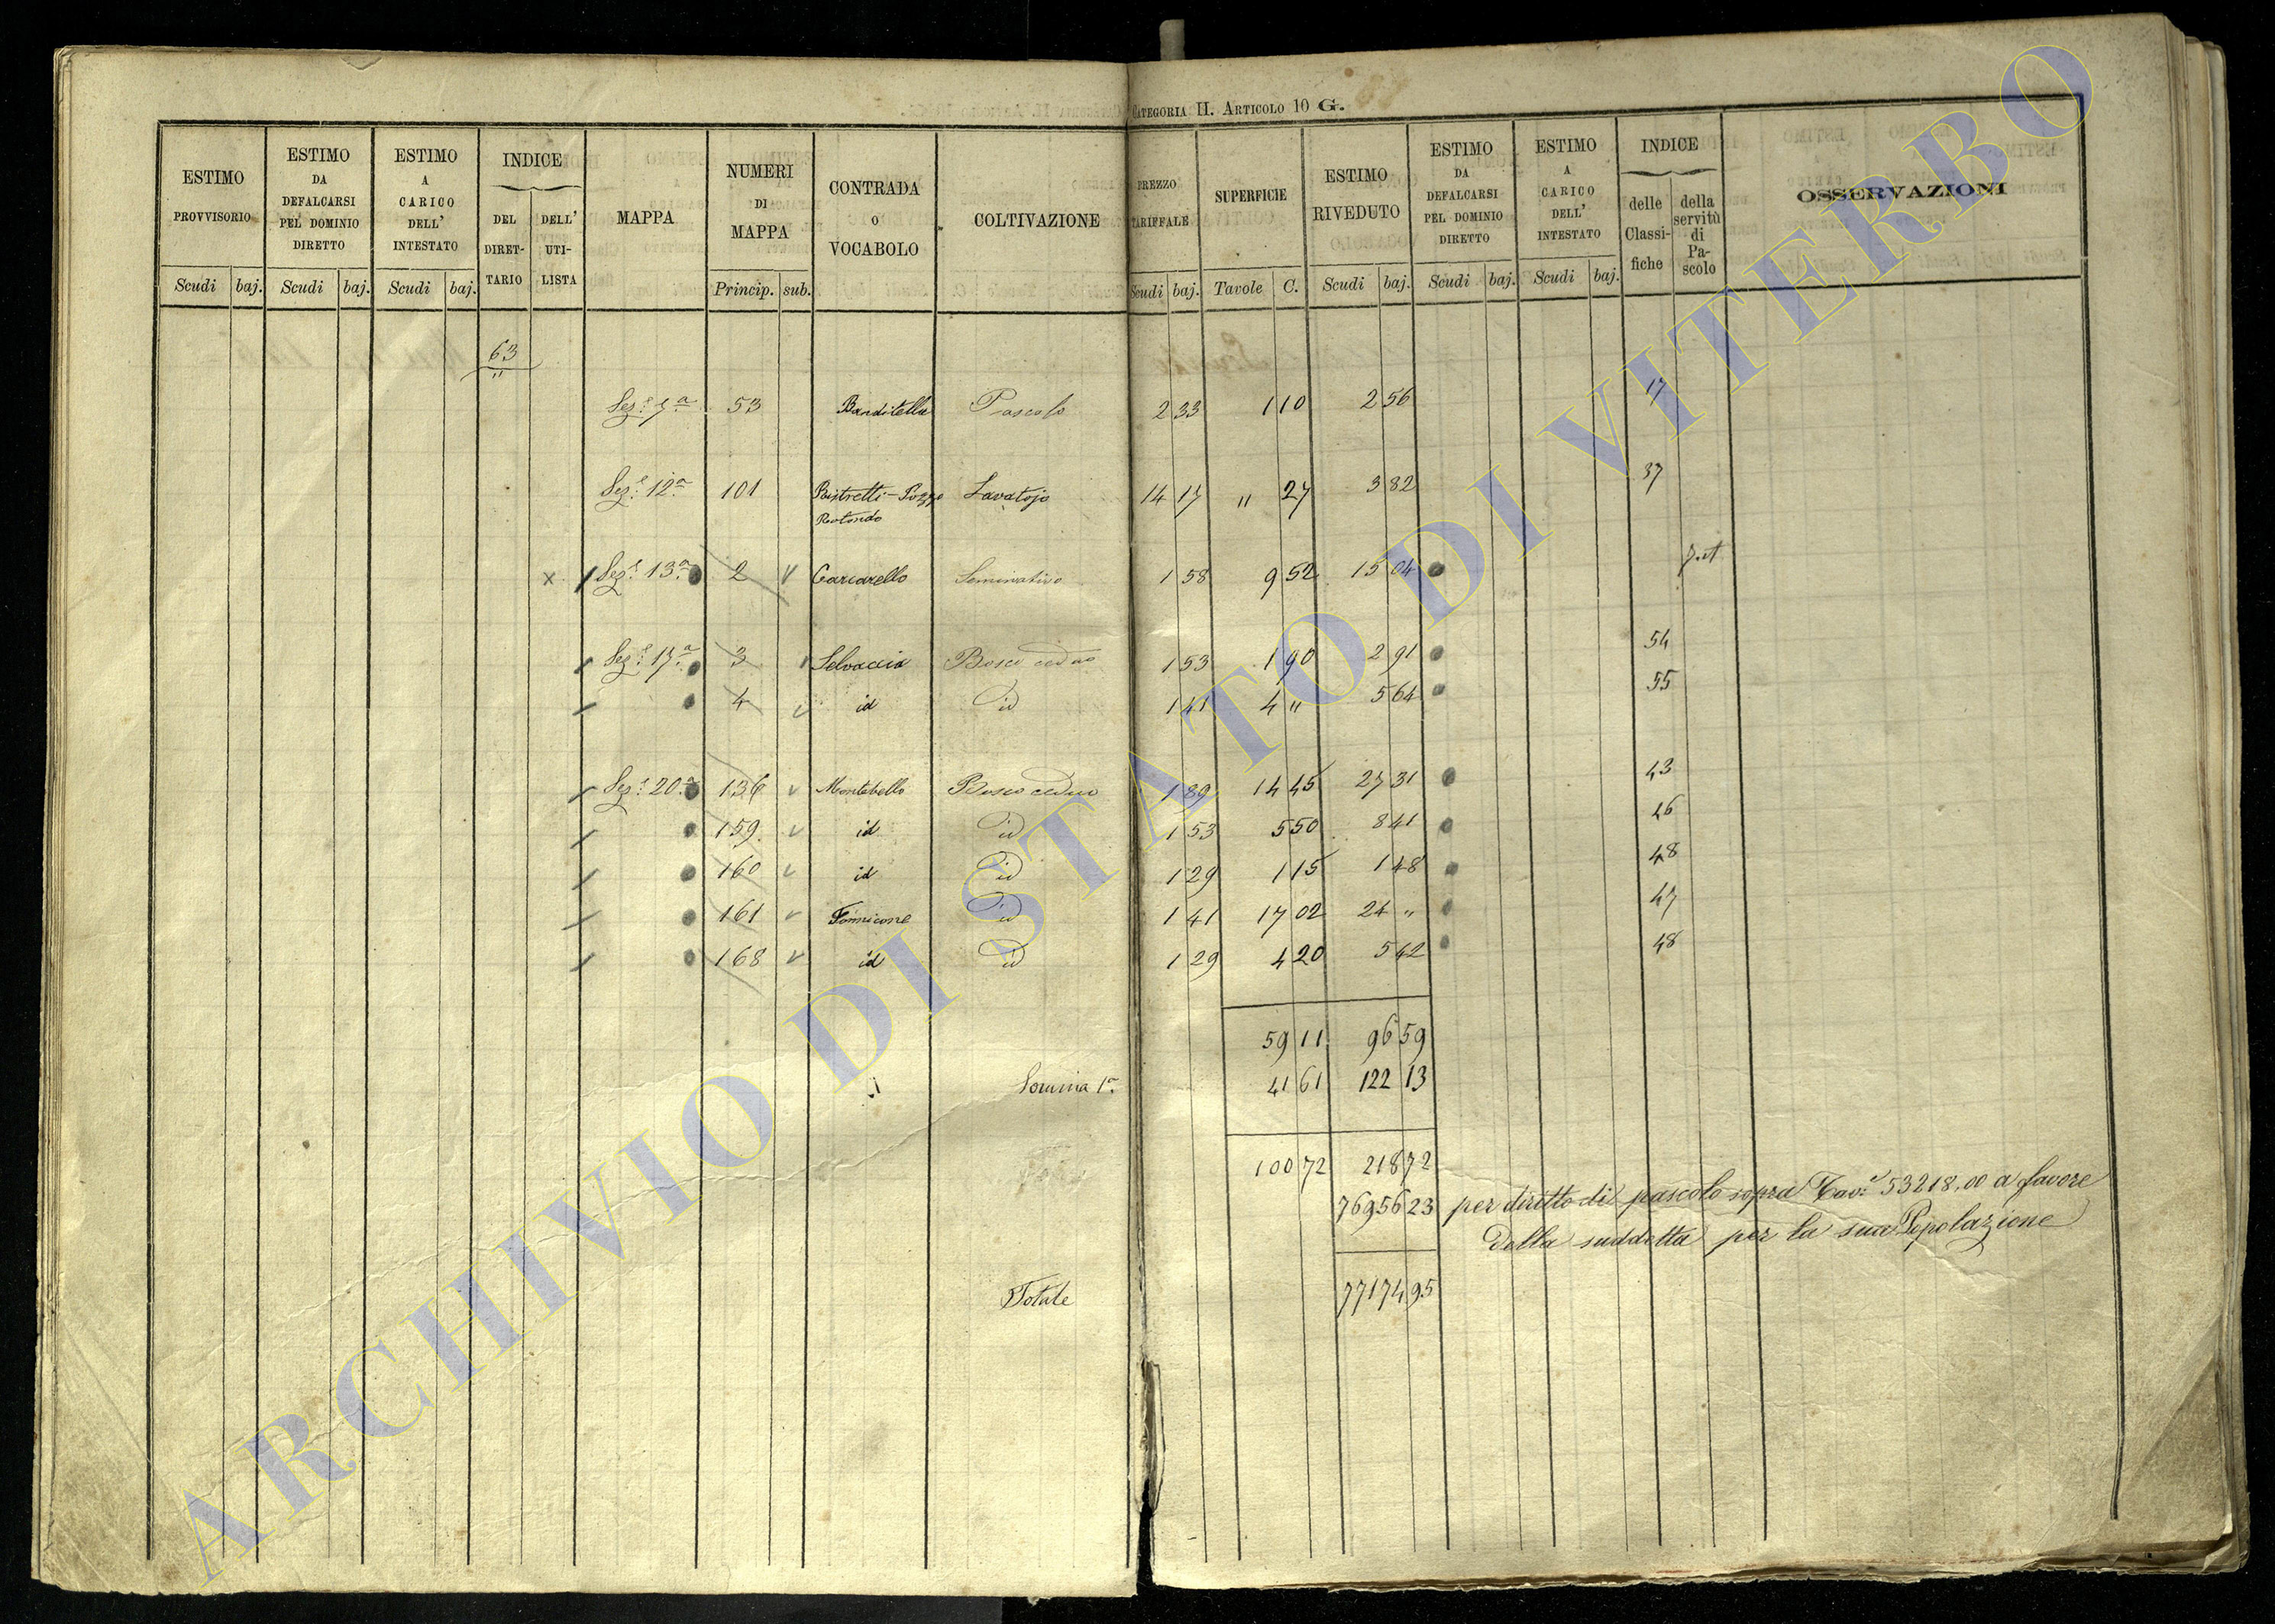 CATEGORIA II. ARTICOLO 10 G.
ESTIMO PROVVISORIO Scudi baj.
ESTIMO DA DEFALCARSI PEL DOMINIO DIRETTO Scudi baj.
ESTIMO A CARICO DELL' INTESTATO Scudi baj.
INDICE DEL DIRET-TARIO DELL' UTI-LISTA
MAPPA
NUMERI DI MAPPA Princip. sub.
CONTRADA O VOCABOLO
COLTIVAZIONE
PREZZO TARIFFALE Scudi baj.
SUPERFICIE Tavole C.
ESTIMO RIVEDUTO Scudi baj.
ESTIMO DA DEFALCARSI PEL DOMINIO DIRETTO Scudi baj.
ESTIMO A CARICO DELL' INTESTATO Scudi baj.
INDICE delle Classi-fiche della servitù di Pa-scolo
OSSERVAZIONI
63
"
53 Banditella Pascolo 2 33 1 10 2 56 17
Sez.e 12a 101 Ristretti - Pozzo Lavatojo 14 17 " 27 3 82 37
Rotondo
x Sez.e 13a 2 Carcarello Seminativo 1 58 9 52 15 04
Sez.e 17a 3 Selvaccia Bosco ceduo 1 53 1 90 2 91 54
4 id id 1 41 4 " 5 64 55
Sez.e 20a 136 Montebello Bosco ceduo 1 89 14 45 27 31 43
159 id id 1 53 5 50 8 41 46
160 id id 1 29 1 15 1 48 48
161 id 1 41 17 02 24 " 47
168 id id 1 29 4 20 5 42 48
59 11 96 59
Somma 1a 41 61 122 13
100 72 218 72
76956 23 per diretto di pascolo sopra Tav.e 53218,00 a favore
della suddetta per la sua Popolazione
Totale 77174 95
ARCHIVIO DI STATO DI VITERBO